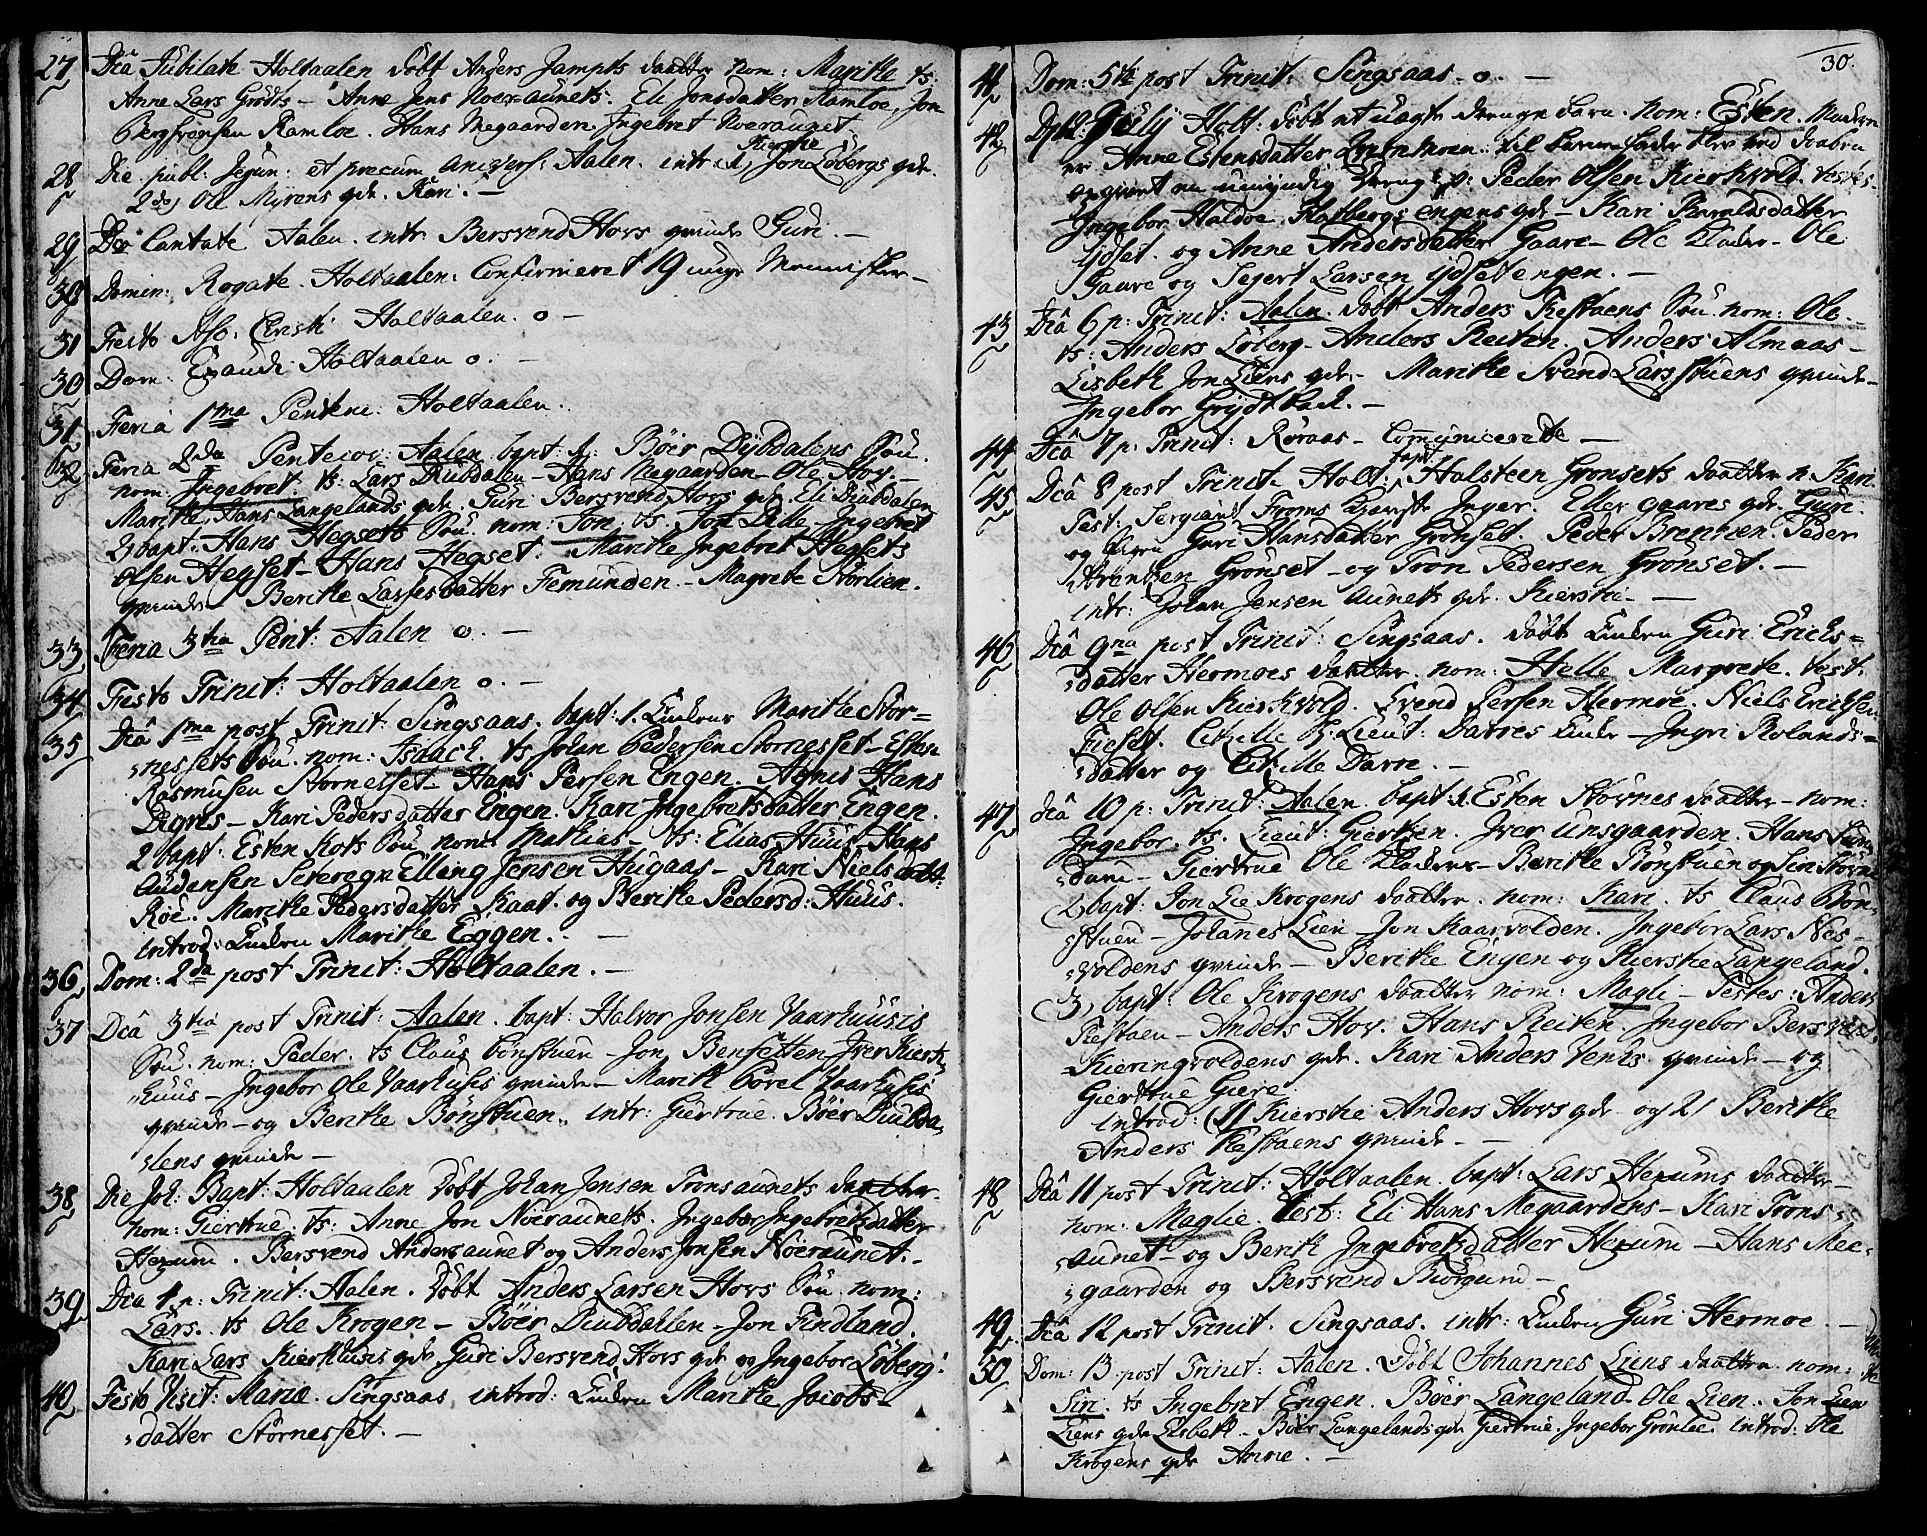 27 Dca Jubilate Holtaalen døbt Anders Jampts daatter nom: Maritke ts:
Anne Lars Grødts – Anne Jens Noeraunets. Eli Jonsdatter Ramloe, Jon
Ramloe. Hans Megaarden. Ingebret Noeraunet.
28 Die publ: Jejun: et precum univers: Aalen. intr: 1, Kierstie Jon Løbergs qde.
2de Ole Myrens qde. Kari. –
29 Dca Cantate Aalen. intr. Bersvend Hovs qvinde Guri. –
30 Domin: Rogate. Holtaalen. Confirmeret 19 unge Mennisker –
31 Festo Asc: Christi Holtaalen. o –
30 Dom: Exaudi Holtaalen o. –
31. Feria 1ma Pentec: Holtaalen.
32 Feria 2da Pentecos: Aalen. bapt: 1. Bøer Dybdalens Søn.
nom: Ingebret ts: Lars Diubdalen – Hans Megaarden – Ole Hov. –
Maritke Hans Langelands qde. Guri Bersvend Hovs qde Eli Diubdalen
2 bapt. Hans Hegsets Søn. nom: Jon. ts. Jon Lille Ingebret
Olsen Hegset – Hans Hegset. Maritke Ingebret Hegsets
qvinde – Beritke Larsesdatter Femunden. – Magrete Størlien.
33 Feria 3tia Pent: Aalen o. –
34 Festo Trinit: Holtaalen o. –
35 Dca 1ma post Trinit: Singsaas. bapt: 1. Enkens Maritke Stor=
nessets Søn. nom: Isaach. ts Johan Pedersen Stornesset – Esten
Rasmusen Stornesset – Hans Persen Engen. Agnis Hans
Digris – Kari Pedersdatter Engen. Kari Ingebretsdatter Engen.
2 bapt: Esten Kots Søn nom: Mathias – ts: Elias Huus – Hans
Audensen Elling Jensen Haugaas – Kari Nielsdatt:
Røe. Maritke Pedersdatter Kaat. og Beritke Pedersd: Huus.
introd: Enken Maritke Eggen. –
36 Dom: 2da post Trinit: Holtaalen. –
37 Dca 3tia post Trinit: Aalen. bapt: Halvor Jonsen Vaarhuusis
Søn. nom: Peder. ts Claus Bønstuen – Jon Bensetten Iver Kierk
huus – Ingebor Ole Vaarhusis qvinde – Marit Borel Vaarhusis
qvinde – og Beritke Bønstuen. intr: Giertrue Bøer Diubda=
lens qvinde –
38 Die Joh: Bapt: Holtaalen døbt Johan Jensen Tronsaunets daatter
nom: Giertrue. ts: Anne Jon Nøeraunets. Ingebor Ingebretsdatter
Hexum. Bersvend Andersaunet og Anders Jonsen Nøeraunet. –
39 Dca 4 p: Trinit: Aalen. døbt Anders Larsen Hovs Søn nom:
Lars. ts Ole Krogen – Bøer Diubdahlen – Jon Findland.
Kari Lars Kierkhusis qde Guri Bersvend Hovs qde og Ingebor Løberg.
40 Festo Visit: Mariæ. Singsaas introd: Enken Maritke Jacobs=
datter Stornesset. –
30.
41 Dom: 5te post Trinit: Singsaas. o. –
42 D. 12. July Holt: døbt et uægte drenge barn. nom: Esten. Moderen
er Anne Estensdatter til barne fader blev ved daaben
angivet en umyndig dreng Peder Olsen Kierkvold. testes
Ingebor Haldoe engens qde – Kari Haraldsdatter
Ydset. og Anne Andersdatter Gaare – Ole – Ole
Gaare og Sejert Larsen Ydsetengen. –
43 Dca 6 p: Trinit: Aalen. døbt Anders Restaens Søn nom: Ole. –
ts: Anders Løberg – Anders Reiten. Anders Almaas –
Lisbeth Jon Liens qde – Maritke Svend Larsstuens qvinde –
Ingebor Grydtbach. –
44 Dca 7 p: Trinit: Røraas – Comunicerede –
45 Dca 8 post Trinit – Holt: bapt: Halsteen Grønsets daatter n: Kari.
Test: Sergiant Froms Inger. Eller Gaares qde. Guri.
og Pigen Guri Hansdatter Grønset. Peder Peder
Arentsen Grønset – og Tron Pedersen Grønset. –
intr: Johan Jensen Aunets qde. Kierstie – –
46 Dca 9na post Trinit: Singsaas. døbt Enken Guri Erichs=
datter Hermoes daatter. nom: Helle Margrete. test:
Ole Olsen Kierkvold. Svend Persen Hermoe. Niels Erichsen
Lieut: Darres Enke – Ingri Rolands=
datter og Darre. –
47 Dca 10 p: Trinit: Aalen. bapt: 1. Esten Størnes daatter – nom:
Ingebor. ts. Lieut: Giertzen. Iver Unsgaarden. Hans
Giertrue Ole – Beritke Bønstuen og Siri Størne
2, bapt: Jon Lie Krogens daatter. nom: Kari. ts Claus Bøn=
stuen – Johanes Lien – Jon Kaarvolden. Ingebor Lars Nes=
voldens qvinde – Beritke Engen og Kierstie Langeland.
3, bapt: Ole Krogens daatter nom: Magli – Testes: Anders
Restaen – Anders Hov. Hans Reiten. Ingebor Bersvend
Kieringvoldens qde. Kari Anders Vents qvinde – og
Giertrue Giere
introd: 1 Kierstie Anders Hovs qde og 2 Beritke
Anders Restaens qvinde – –
48 Dca 11 post Trinit: Holtaalen. bapt: Lars Hexums daatter –
nom: Maglie. Test: Eli Hans Megaardens – Kari Trons=
aunet – og Berit Ingebretsdatter Hexum – Hans Mee=
gaarden og Bersvend Biørgum –
49 Dca 12 post Trinit. Singsaas. intr: Enken Guri Hermoe. –
50 Dom: 13 post Trinit: Aalen. Døbt Johannes Liens daatter nom:
Siri. ts Ingebret Engen. Bøer Langeland – Ole Lien. Jon Lien
Liens qde Lisbeth – Bøer Langelands qde Giertrue. Ingebor Grønlie. introd: Ole
Krogens qde Anne. –